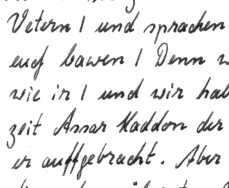 Vetern / und sprachen
euch bawen / Denn w
wie ir / und wir hab
zeit Assar Haddon der
er auffgebracht. Aber